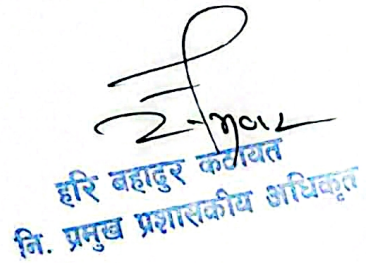 हरि बहादुर कठायत
नि. प्रमुख प्रशासकीय अधिकृत